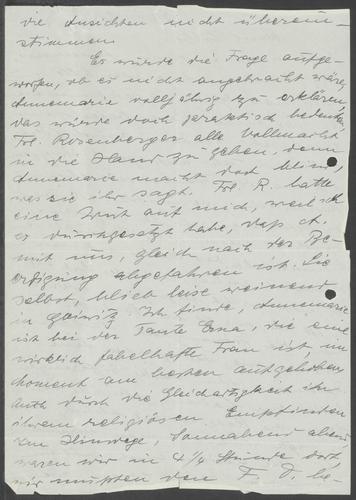 die Ansichten nicht überein-
stimmen.
Es würde die Frage aufge-
worfen, ob es nicht angebracht wäre,
Annemarie volljährig zu erklären,
das würde doch praktisch bedeuten
Frl. Rosenberger alle Vollmacht
in die Hand zu geben, denn
Annemarie macht doch blind,
was sie ihr sagt. Frl. R. hatte
eine Wut auf mich, weil ich
es durchgesetzt habe, daß A.
mit uns, gleich nach der Be-
erdigung abgefahren ist. Sie
selbst, blieb leise weinend
in Ich finde, Annemarie
ist bei der Tante Erna, die eine
wirklich fabelhafte Frau ist, im
Moment am besten aufgehoben
auch durch die Gleichartigkeit in
ihrem religiösen Empfinden
Am Hinwege, Sonnabend abend
waren wir in 4 1/4 Stunde dort,
wir mußten den F. D. be-